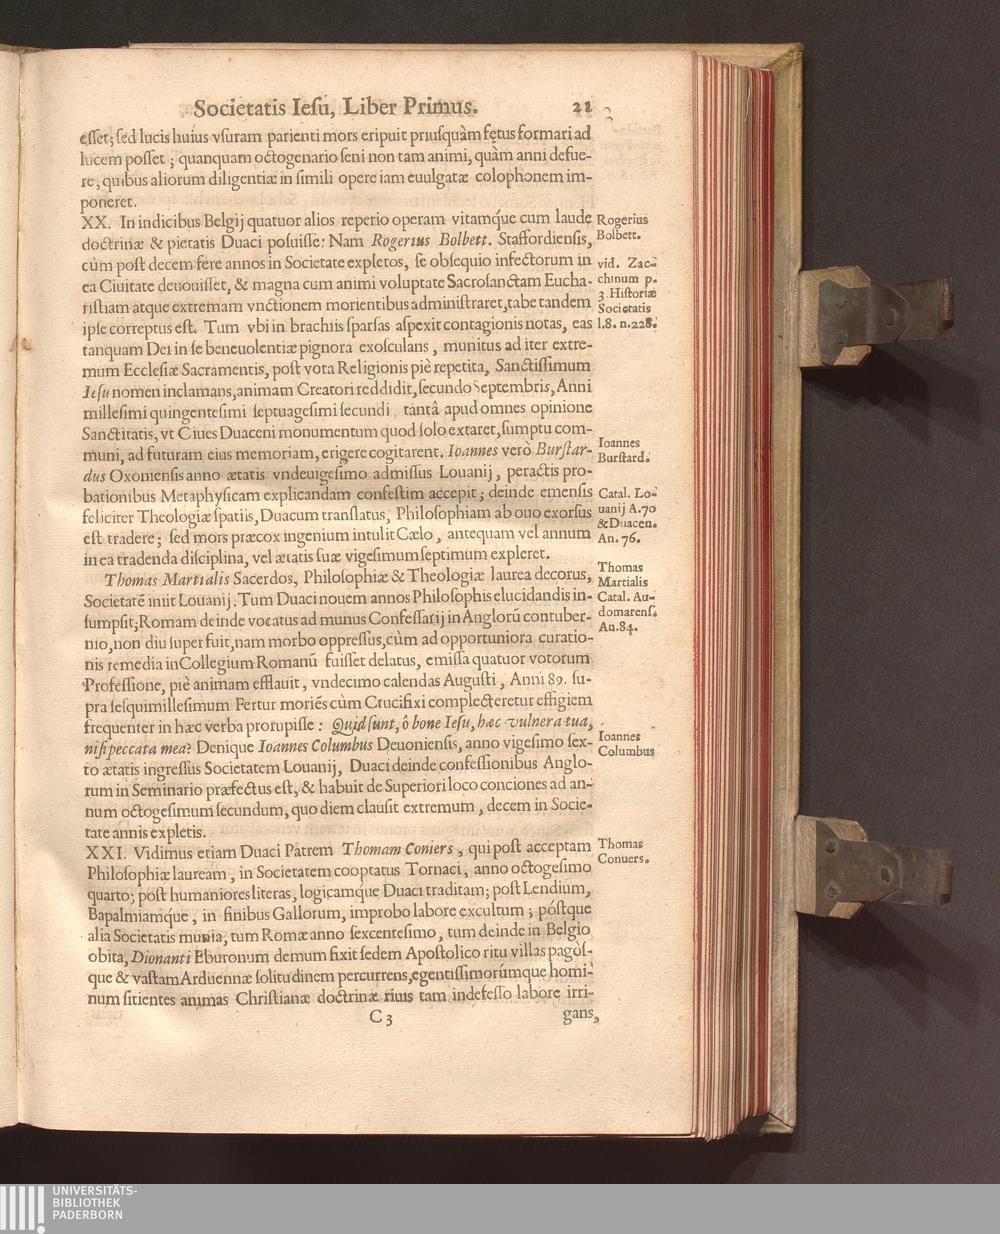 Societatis Iesu, Liber Primus. 21
esset; sed lucis huius vsuram parienti mors eripuit priusquàm fętus formari ad
lucem posset; quanquam octogenario seni non tam animi, quàm anni defue-
re, quibus aliorum diligentiæ in simili opere iam euulgatæ colophonem im-
poneret.
XX. In indicibus Belgij quatuor alios reperio operam vitamq́ue cum laude
doctrinæ & pietatis Duaci posuisse: Nam Rogerius Bolbett. Staffordiensis,
cùm post decem fere annos in Societate expletos, se obsequio infectorum in
ea Ciuitate deuouisset, & magna cum animi voluptate Sacrosanctam Eucha-
ristiam atque extremam vnctionem morientibus administraret, tabe tandem
ipse correptus est. Tum vbi in brachiis sparsas aspexit contagionis notas, eas
tanquam Dei in se beneuolentiæ pignora exosculans, munitus ad iter extre-
mum Ecclesiæ Sacramentis, post vota Religionis piè repetita, Sanctissimum
Iesu nomen inclamans, animam Creatori reddidit, secundo Septembris, Anni
millesimi quingentesimi septuagesimi secundi tantâ apud omnes opinione
Sanctitatis, vt Ciues Duaceni monumentum quod solo extaret, sumptu com-
muni, ad futuram eius memoriam, erigere cogitarent. Ioannes verò Burstar-
dus Oxoniensis anno ætatis vndeuigesimo admissus Louanij, peractis pro-
bationibus Metaphysicam explicandam confestim accepit; deinde emensis
feliciter Theologiæ spatiis, Duacum translatus, Philosophiam ab ouo exorsus
est tradere; sed mors præcox ingenium intulit Cælo, antequam vel annum
in ea tradenda disciplina, vel ætatis suæ vigesimum septimum expleret.
Thomas Martialis Sacerdos, Philosophiæ & Theologiæ laurea decorus,
Societatē iniit Louanij. Tum Duaci nouem annos Philosophis elucidandis in-
sumpsit; Romam deinde vocatus ad munus Confessarij in Anglorū contuber-
nio, non diu superfuit, nam morbo oppressus, cùm ad opportuniora curatio-
nis remedia in Collegium Romanū fuisset delatus, emissa quatuor votorum
Professione, piè animam efflauit, vndecimo calendas Augusti, Anni 89. su-
pra sesquimillesimum Fertur moriēs cùm Crucifixi complecteretur effigiem
frequenter in hæc verba prorupisse: Quid sunt, ô bone Iesu, hæc vulnera tua,
nisi peccata mea? Denique Ioannes Columbus Deuoniensis, anno vigesimo sex-
to ætatis ingressus Societatem Louanij, Duaci deinde confessionibus Anglo-
rum in Seminario præfectus est, & habuit de Superiori loco conciones ad an-
num octogesimum secundum, quo diem clausit extremum, decem in Socie-
tate annis expletis.
XXI. Vidimus etiam Duaci Patrem Thomam Coniers, qui post acceptam
Philosophiæ lauream, in Societatem cooptatus Tornaci, anno octogesimo
quarto; post humaniores literas, logicamq́ue Duaci traditam; post Lendium,
Bapalmiamq́ue, in finibus Gallorum, improbo labore excultum; póstque
alia Societatis munia, tum Romæ anno sexcentesimo, tum deinde in Belgio
obita, Dionanti Eburonum demum fixit sedem Apostolico ritu villas pagòs-
que & vastam Arduennæ solitudinem percurrens, egentissimorúmque homi-
num sitientes animas Christianæ doctrinæ riuis tam indefesso labore irri-
C 3 gans,
Rogerius
Bolbett.
vid. Zac-
chinum p.
3 Historiæ
Societatis
l.8. n.228.
Ioannes
Burstard.
Catal. Lo-
uanij A.70
& Duacen.
An. 76.
Thomas
Martialis
Catal. Au-
domarens.
An. 84.
Ioannes
Columbus
Thomas
Conuers.
UNIVERSITÄTS-
BIBLIOTHEK
PADERBORN